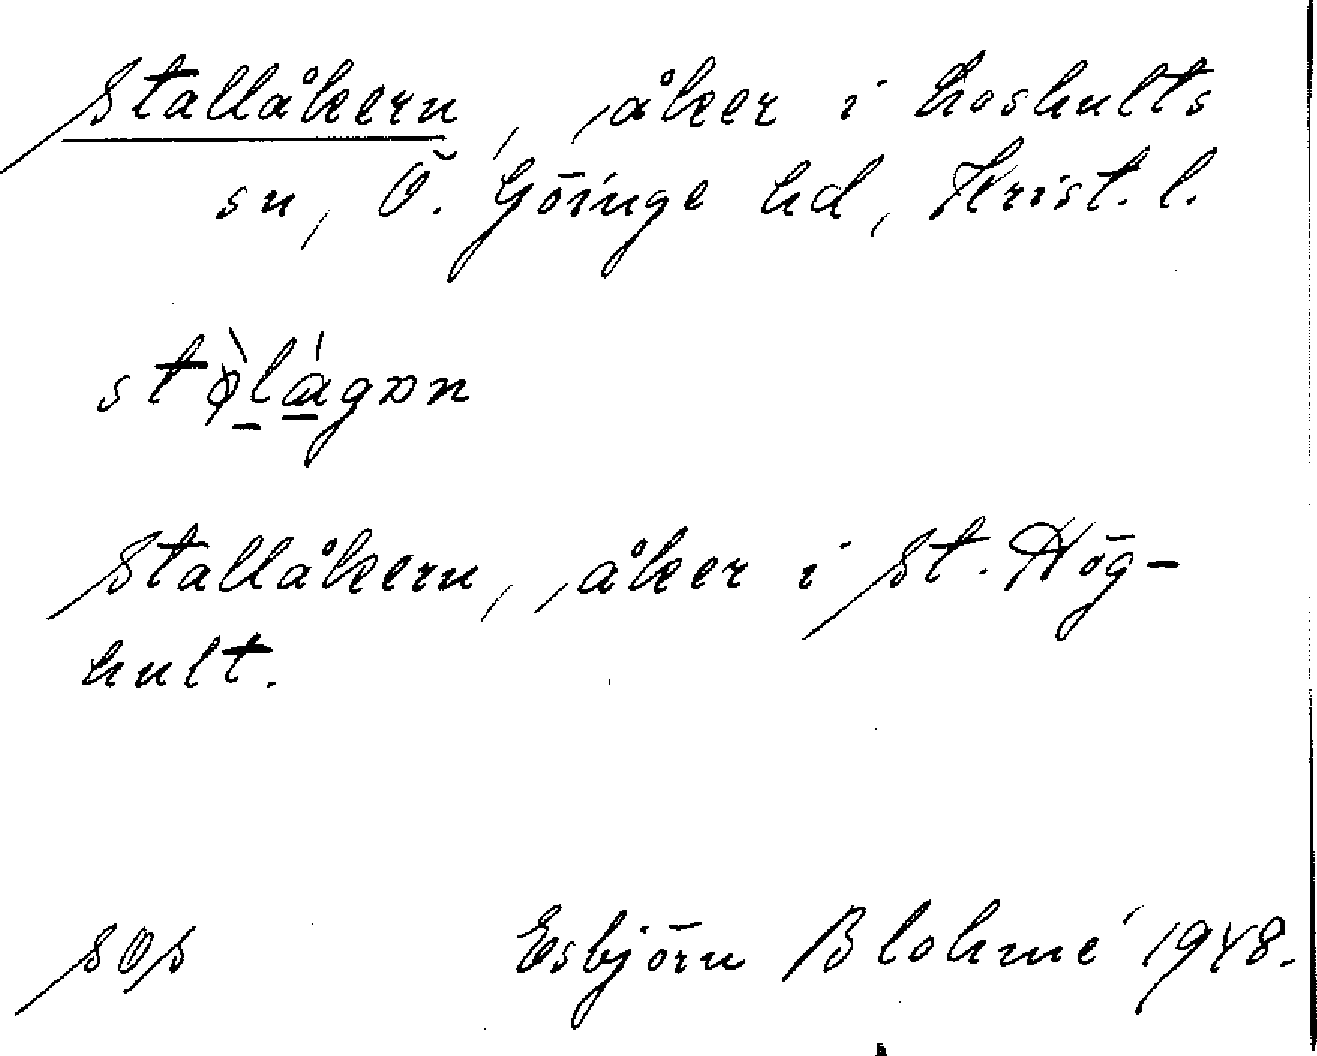 Stallåkern, åker i Loshults
sn, Ö. Göinge hd, Krist. l.
Stallåkern, åker i St. Hög-
hult.
SOS Esbjörn Blohmé 1948.